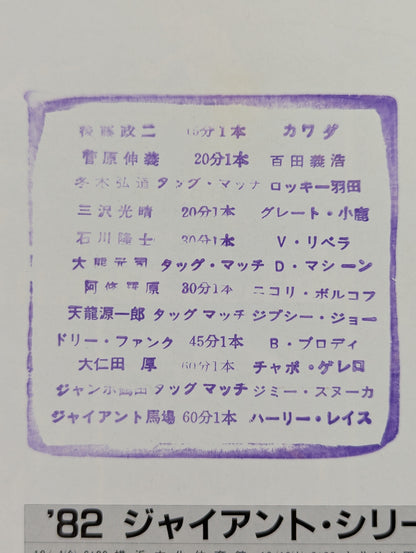 後藤政二 15分1本 カワダ
菅原伸義 20分1本 百田義浩
冬木弘道 タッグ・マッチ ロッキー羽田
三沢光晴 20分1本 グレート・小鹿
石川隆士 30分1本 V・リベラ
大熊元司 タッグ・マッチ D・マシーン
阿修羅原 30分1本 ニコリ・ボルコフ
天龍源一郎 タッグ マッチ ジプシー・ジョー
ドリー・ファンク 45分1本 B・ブロディ
大仁田 厚 60分1本 チャボ・ゲレロ
ジャンボ鶴田 タッグ マッチ ジミー・スヌーカ
ジャイアント馬場 60分1本 ハーリー・レイス
'82 ジャイアント・シリー